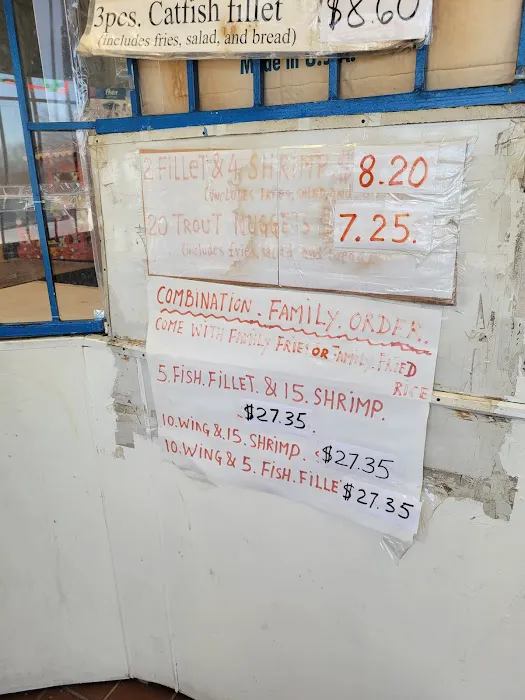 3pcs. Catfish fillet $8.60
(includes fries, salad, and bread)
Made in U.S.A.
2 FiLLeT & 4 SHRIMP $ 8.20
(includes fries, salad, and
20 TROUT NUGGETS 7.25.
(includes fries, salad and bread)
COMBINATION. FAMILY. ORDER.
COME WITH FAMILY FRIES OR FAMILY. FRIED
RICE
5. FISH. FILLET. & 15. SHRIMP.
$27.35.
10. WING & .15. SHRIMP. $27.35
10. WING & 5. FISH. FILLE $27.35